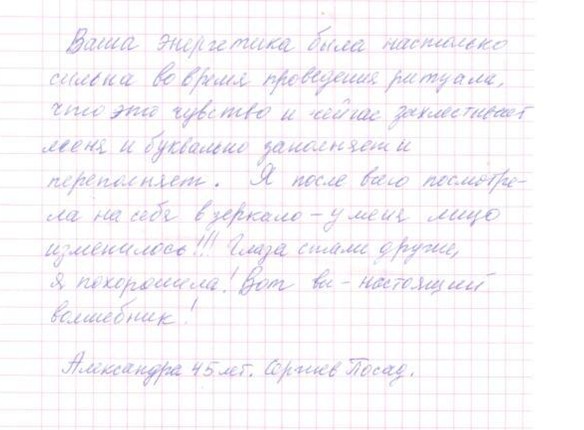 Ваша энергетика была настолько
сильна во время проведения ритуала,
что это чувство и сейчас захлестывает
меня и буквально заполняет и
переполняет. Я после всего посмотре-
ла на себя в зеркало - у меня лицо
изменилось!!! Глаза стали другие,
я похорошела! Вот вы - настоящий
волшебник!
Александра 45 лет. Сергиев Посад.